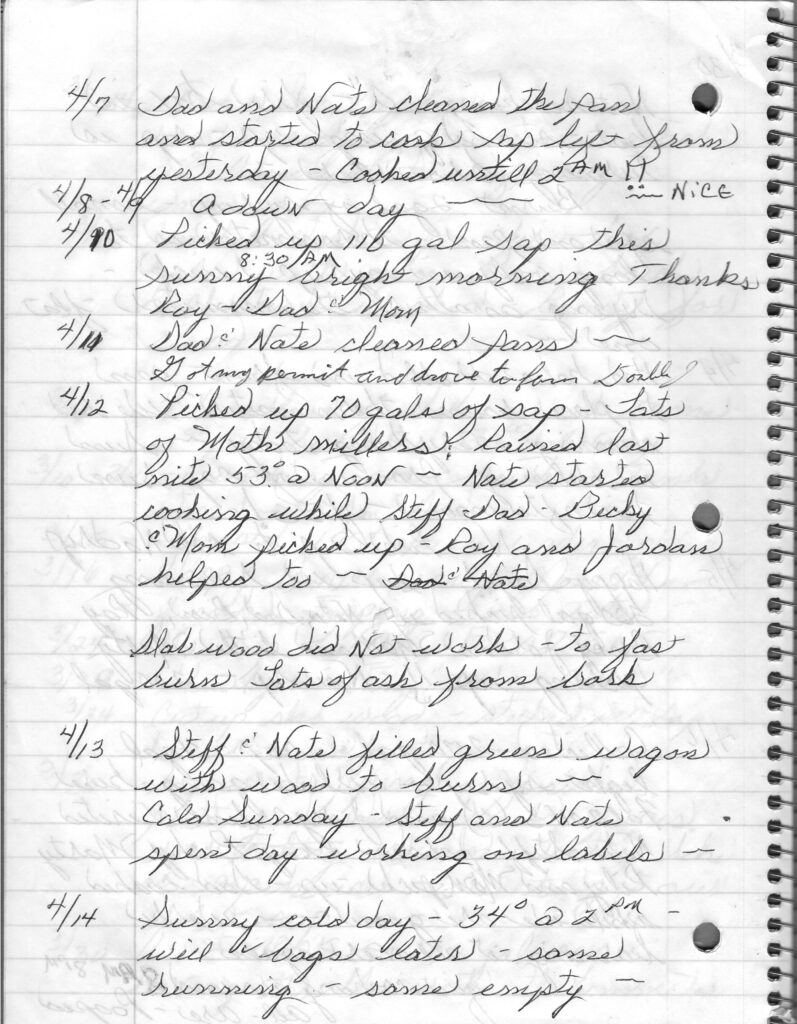 4/7 Dad and Nate cleaned the pan
and started to cook sap left from
yesterday - Cooked untill 2 AM !!
NiCE
4/8 - 4/9 A down day
4/10 Picked up 110 gal sap this
8:30 AM
sunny brigh morning Thanks
Roy - Dad & Mom
4/11 Dad & Nate cleaned pans
Got my permit and drove to farm
4/12 Picked up 70 gals of sap - Lots
of Moth millers! Rained last
nite 53° @ NOON - Nate started
cooking while Steff - Dad - Becky
& Mom picked up - Roy and Jordan
helped too - Dad & Nate
Slab wood did Not work - to fast
burn Lots of ash from bark
4/13 Steff & Nate filled green wagon
with wood to burn
Cold Sunday - Steff and Nate
spent day working on labels -
4/14 Sunny cold day - 34° @ 2 PM -
will bags later - some
running - some empty -